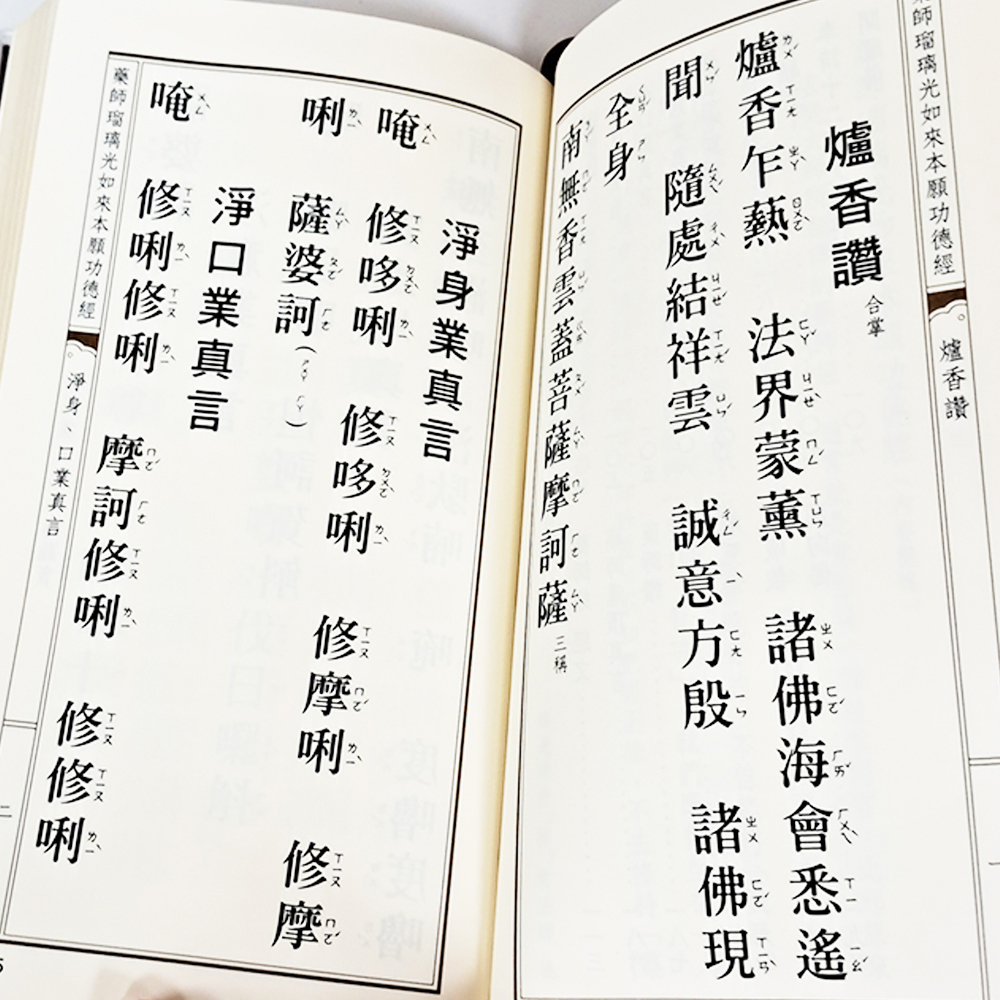 藥師瑠璃光如來本願功德經
爐香讚
爐香讚 合掌
爐香乍爇 法界蒙薰 諸佛海會悉遙
聞 隨處結祥雲 誠意方殷 諸佛現
全身
南無香雲蓋菩薩摩訶薩 三稱
淨身業真言
唵 修哆唎 修哆唎 修摩唎 修摩
唎 薩婆訶(ㄙㄚ ㄏㄚ)
淨口業真言
唵 修唎修唎 摩訶修唎 修修唎
藥師瑠璃光如來本願功德經
淨身、口業真言